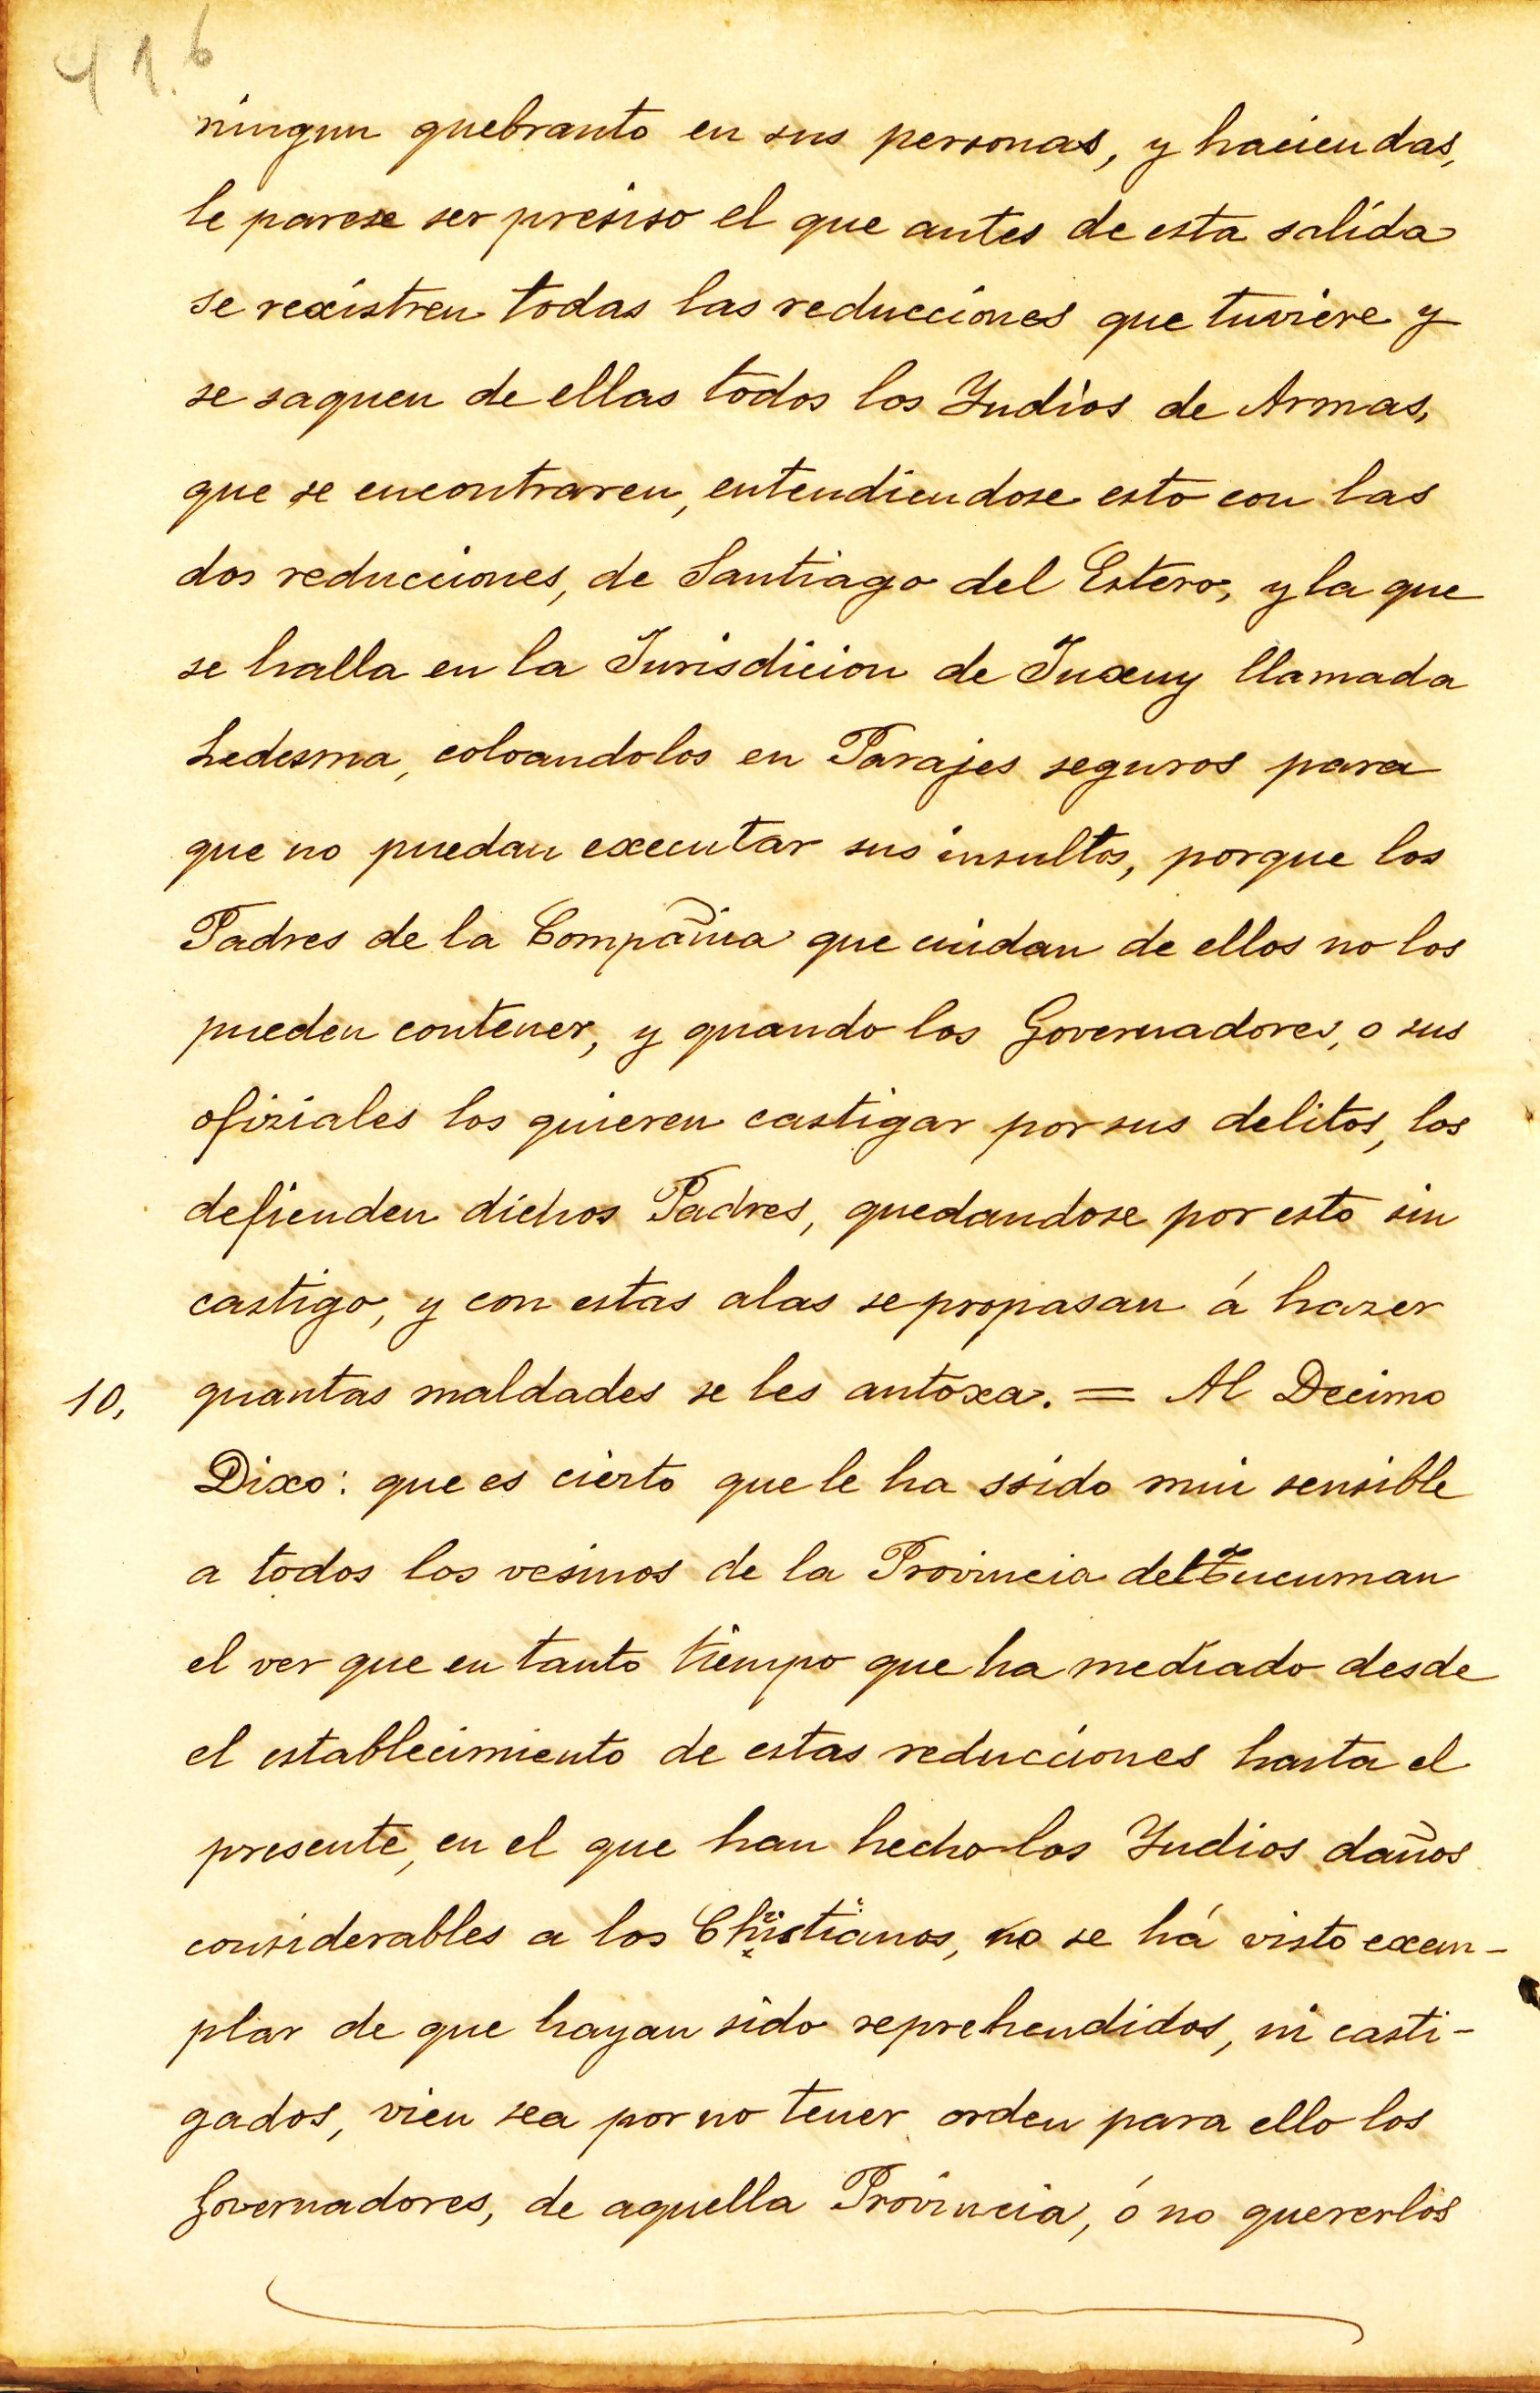 416
ningun quebranto en sus personas, y haciendas,
le parese ser presiso el que antes de esta salida
se rexistren todas las reducciones que tuviere y
se saquen de ellas todos los Yndios de Armas,
que se encontraren, entendiendose esto con las
dos reducciones, de Santiago del Estero, y la que
se halla en la Jurisdicion de Juxuy llamada
Ledesma, coloandolos en Parajes seguros para
que no puedan executar sus insultos, porque los
Padres de la Compañia que cuidan de ellos no los
pueden contener, y quando los Governadores, o sus
ofiziales los quieren castigar por sus delitos, los
defienden dichos Padres, quedandose por esto sin
castigo, y con estas alas se propasan á hazer
10, quantas maldades se les antoxa. = Al Decimo
Dixo: que es cierto que le ha ssido mui sensible
a todos los vesinos de la Provincia del Tucuman
el ver que en tanto tiempo que ha mediado desde
el establecimiento de estas reducciones hasta el
presente, en el que han hecho los Yndios daños
considerables a los Christianos, no se há visto exem-
plar de que hayan sido reprehendidos, ni casti-
gados, vien sea por no tener orden para ello los
Governadores, de aquella Provincia, ó no quererlos